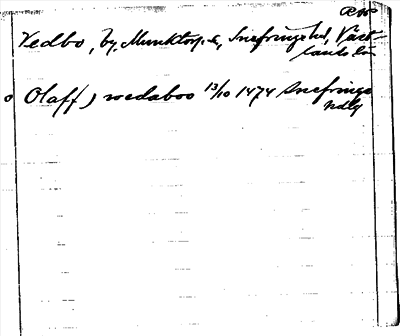 Vedbo, by, Munktorp s, Snefringe hd, Väst-
lands län
Olaff j wedaboo 13/10 1474 Snefringe
hdlg